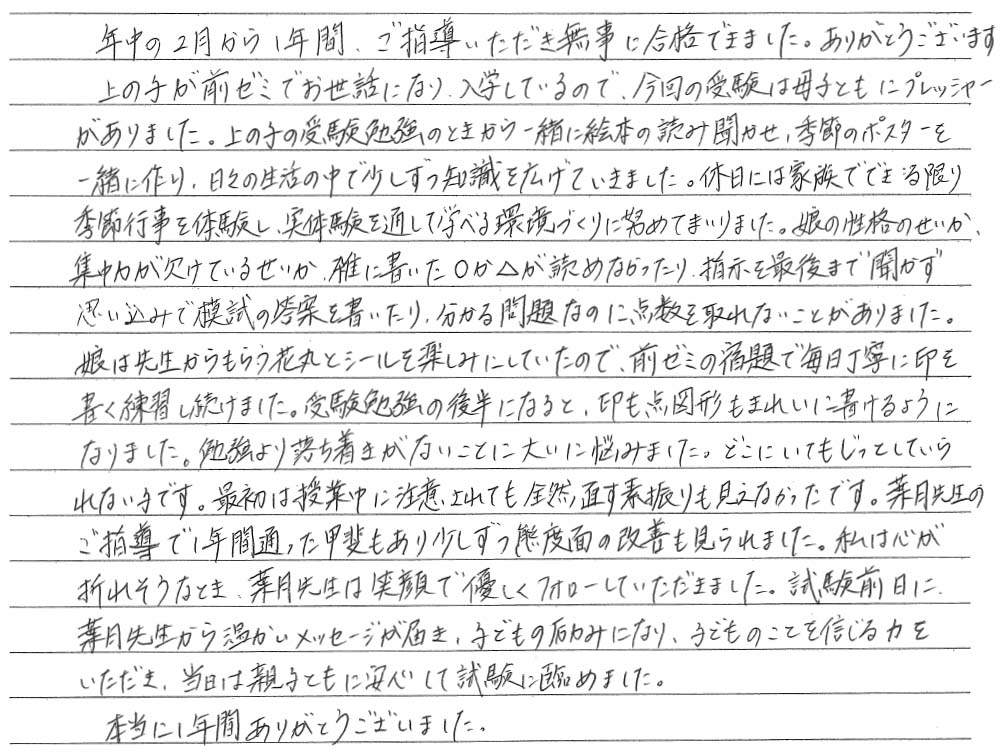 年中の2月から1年間、ご指導いただき無事に合格できました。ありがとうございます
上の子が前ゼミでお世話になり、入学しているので、今回の受験は母子ともにプレッシャー
がありました。上の子の受験勉強のときから一緒に絵本の読み聞かせ、季節のポスターを
一緒に作り、日々の生活の中で少しずつ知識を広げていきました。休日には家族でできる限り
季節行事を体験し、実体験を通して学べる環境づくりに努めてまいりました。娘の性格のせいか、
集中力が欠けているせいか、雑に書いた○か△が読めなかったり、指示を最後まで聞かず
思い込みで模試の答案を書いたり、分かる問題なのに点数を取れないことがありました。
娘は先生からもらう花丸とシールを楽しみにしていたので、前ゼミの宿題で毎日丁寧に印を
書く練習し続けました。受験勉強の後半になると、印も点図形もきれいに書けるように
なりました。勉強より落ち着きがないことに大いに悩みました。どこにいてもじっとしていら
れない子です。最初は授業中に注意されても全然直す素振りも見えなかったです。葉月先生の
ご指導で1年間通った甲斐もあり少しずつ態度面の改善も見られました。私は心が
折れそうなとき、葉月先生は笑顔で優しくフォローしていただきました。試験前日に、
葉月先生から温かいメッセージが届き、子どもの励みになり、子どものことを信じる力を
いただき、当日は親子ともに安心して試験に臨めました。
本当に1年間ありがとうございました。